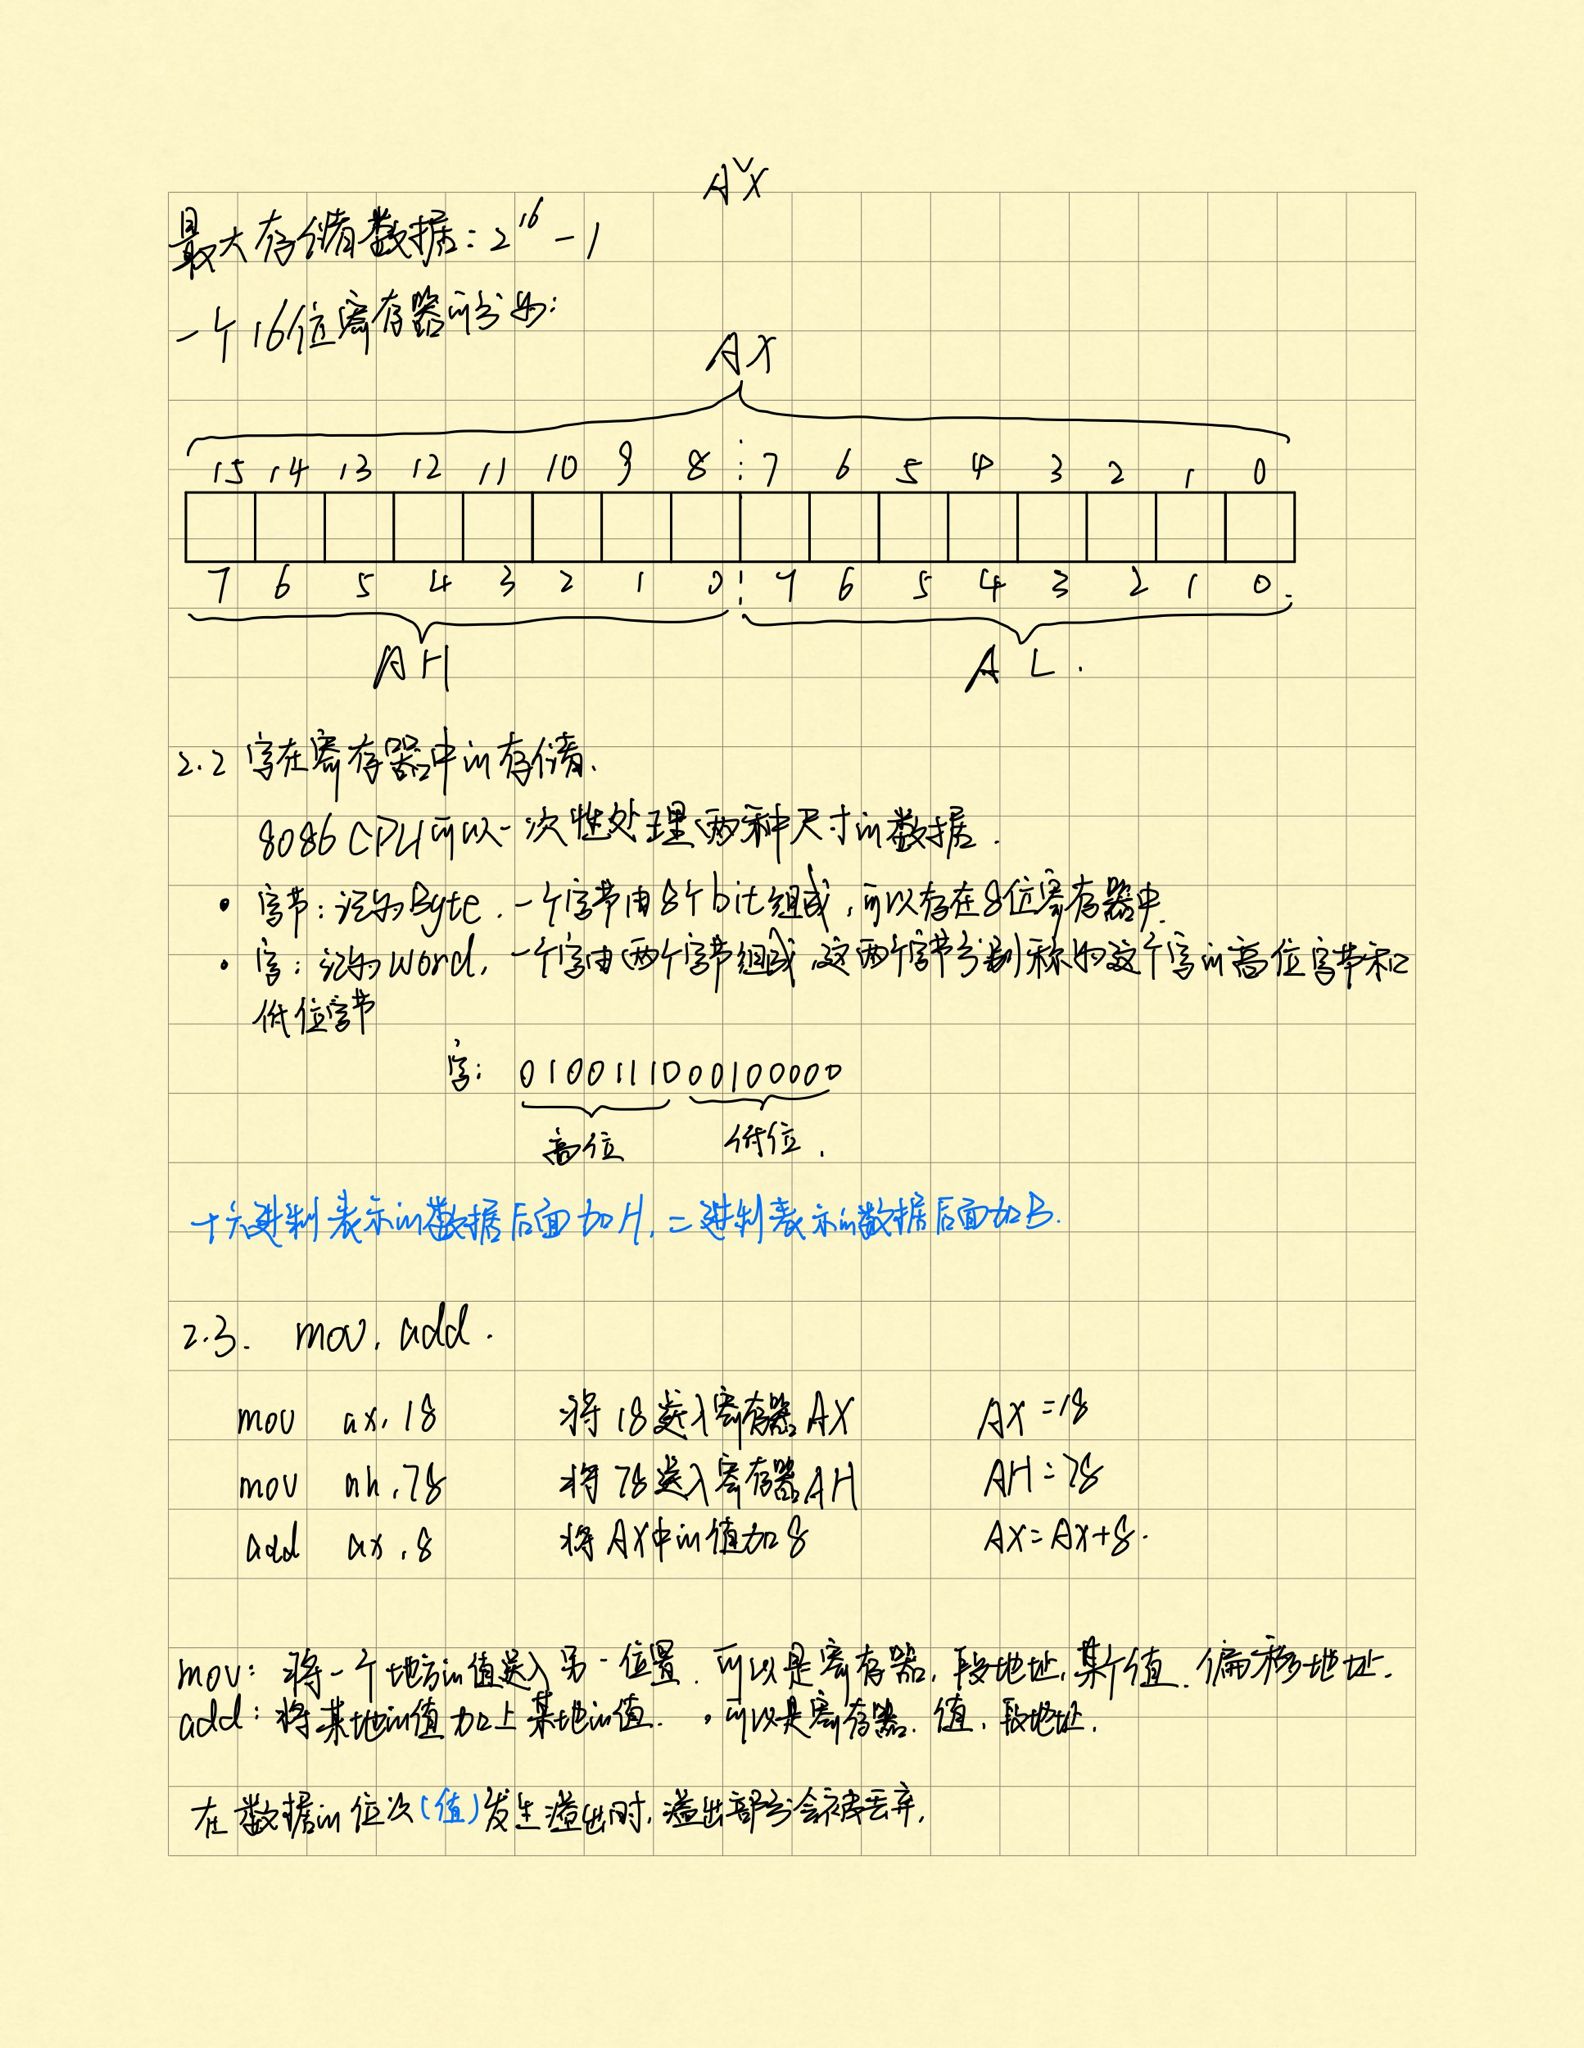 AX
最大存储数据：2^16 - 1
一个16位寄存器可分为：
AX
15 14 13 12 11 10 9 8 7 6 5 4 3 2 1 0
7 6 5 4 3 2 1 0 7 6 5 4 3 2 1 0
AH AL.
2.2 字在寄存器中的存储.
8086CPU可以一次性处理两种尺寸的数据.
• 字节：记为Byte. 一个字节由8个bit组成，可以存在8位寄存器中.
• 字：记为word, 一个字由两个字节组成，这两个字节分别称为这个字的高位字节和
低位字节
字： 0100111000100000
高位 低位.
十六进制表示的数据后面加H, 二进制表示的数据后面加B.
2.3. mov, add.
mov ax, 18 将18送入寄存器AX AX=18
mov ah, 78 将78送入寄存器AH AH=78
add ax, 8 将AX中的值加8 AX=AX+8.
mov: 将一个地方的值送入另一位置. 可以是寄存器, 段地址, 某个值. 偏移地址.
add: 将某地的值加上某地的值. 可以是寄存器. 值. 段地址.
在数据的位次(值)发生溢出时, 溢出部分会被丢弃.